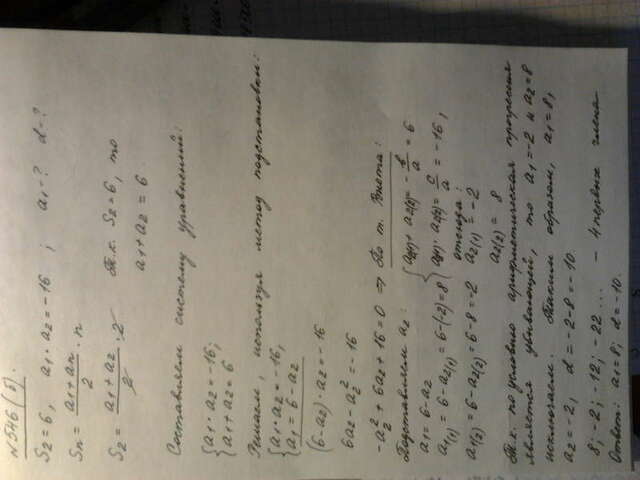 №546(б).
S₂=6, a₁·a₂=-16; a₁-? d-?
Sₙ= (a₁+aₙ)/2 · n
S₂= (a₁+a₂)/2 · 2 Т.к. S₂=6, то
a₁+a₂=6.
Составляем систему уравнений:
{a₁·a₂=-16;
{a₁+a₂=6
Решаем, используя метод подстановки:
{a₁·a₂=-16,
{a₁=6-a₂
(6-a₂)·a₂=-16
6a₂-a₂²=-16
-a₂²+6a₂+16=0 ⇒ По т. Виета:
Подставляем a₂: {a₂₍₁₎+a₂₍₂₎=-b/a=6
a₁=6-a₂ {a₂₍₁₎·a₂₍₂₎=c/a=-16;
a₁₍₁₎=6-a₂₍₁₎=6-(-2)=8 отсюда:
a₁₍₂₎=6-a₂₍₂₎=6-8=-2 a₂₍₁₎=-2
a₂₍₂₎=8
Т.к. по условию арифметическая прогрессия
является убывающей, то a₁=-2 и a₂=8
исключаем. Таким образом, a₁=8,
a₂=-2, d=-2-8=-10.
8; -2; -12; -22... - 4 первых члена
Ответ: a₁=8; d=-10.